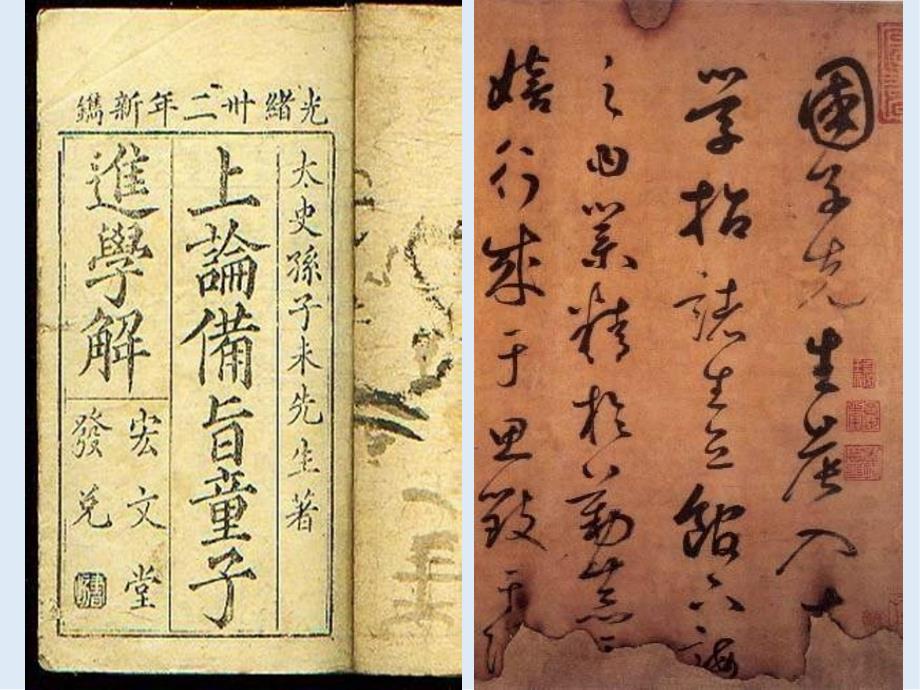 光緒卅二年新鐫
太史孫子未先生著
上論備旨童子
進學解
宏文堂
發兌
國子先生晨入大
學招諸生立館下誨
之曰業精於勤荒于
嬉行成于思毀于